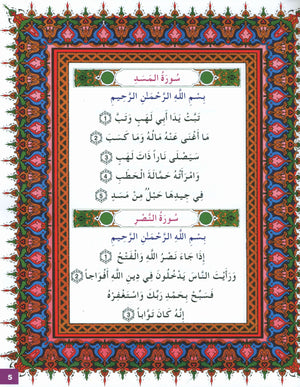 سُورَةُ المَسَد
بِسْمِ اللَّهِ الرَّحْمَٰنِ الرَّحِيمِ
تَبَّتْ يَدَا أَبِي لَهَبٍ وَتَبَّ ①
مَا أَغْنَى عَنْهُ مَالُهُ وَمَا كَسَبَ ②
سَيَصْلَى نَاراً ذَاتَ لَهَبٍ ③
وَامْرَأَتُهُ حَمَّالَةَ الْحَطَبِ ④
فِي جِيدِهَا حَبْلٌ مِّن مَّسَدٍ ⑤
سُورَةُ النَّصْر
بِسْمِ اللَّهِ الرَّحْمَٰنِ الرَّحِيمِ
إِذَا جَاءَ نَصْرُ اللَّهِ وَالْفَتْحُ ①
وَرَأَيْتَ النَّاسَ يَدْخُلُونَ فِي دِينِ اللَّهِ أَفْوَاجاً ②
فَسَبِّحْ بِحَمْدِ رَبِّكَ وَاسْتَغْفِرْهُ
إِنَّهُ كَانَ تَوَّاباً ③
5